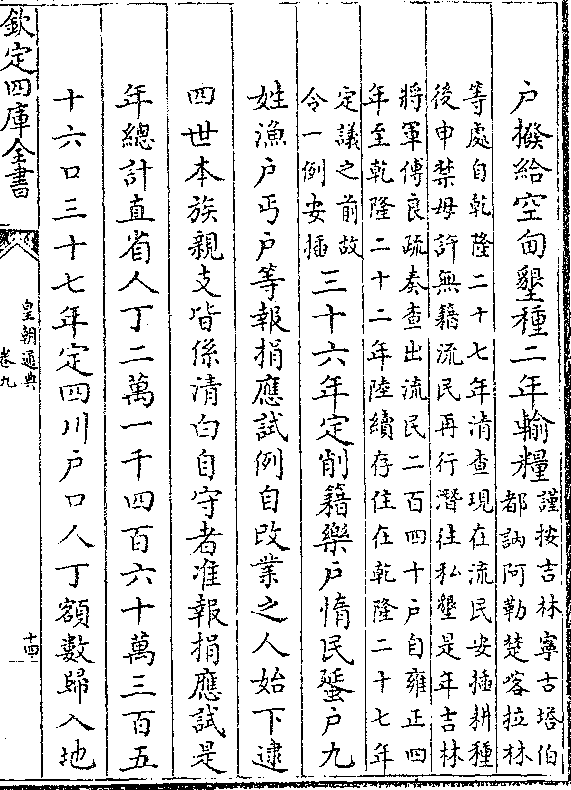 户撥給空甸墾種二年輸糧
謹按吉林寧古塔伯
都訥阿勒楚喀拉林
等處自乾隆二十七年清查現在流民安插耕種
後申禁毋許無籍流民再行潛往私墾是年吉林
將軍傅良疏奏查出流民二百四十户自雍正四
年至乾隆二十二年陸續存住在乾隆二十七年
定議之前故
令一例安插
三十六年定削籍樂户惰民蜑户九
姓漁户丐户等報捐應試例自改業之人始下逮
四世本族親支皆係清白自守者准報捐應試是
年總計直省人丁二萬一千四百六十萬三百五
十六口三十七年定四川户口人丁額數歸入地
欽定四庫全書
皇朝通典
卷九
十四